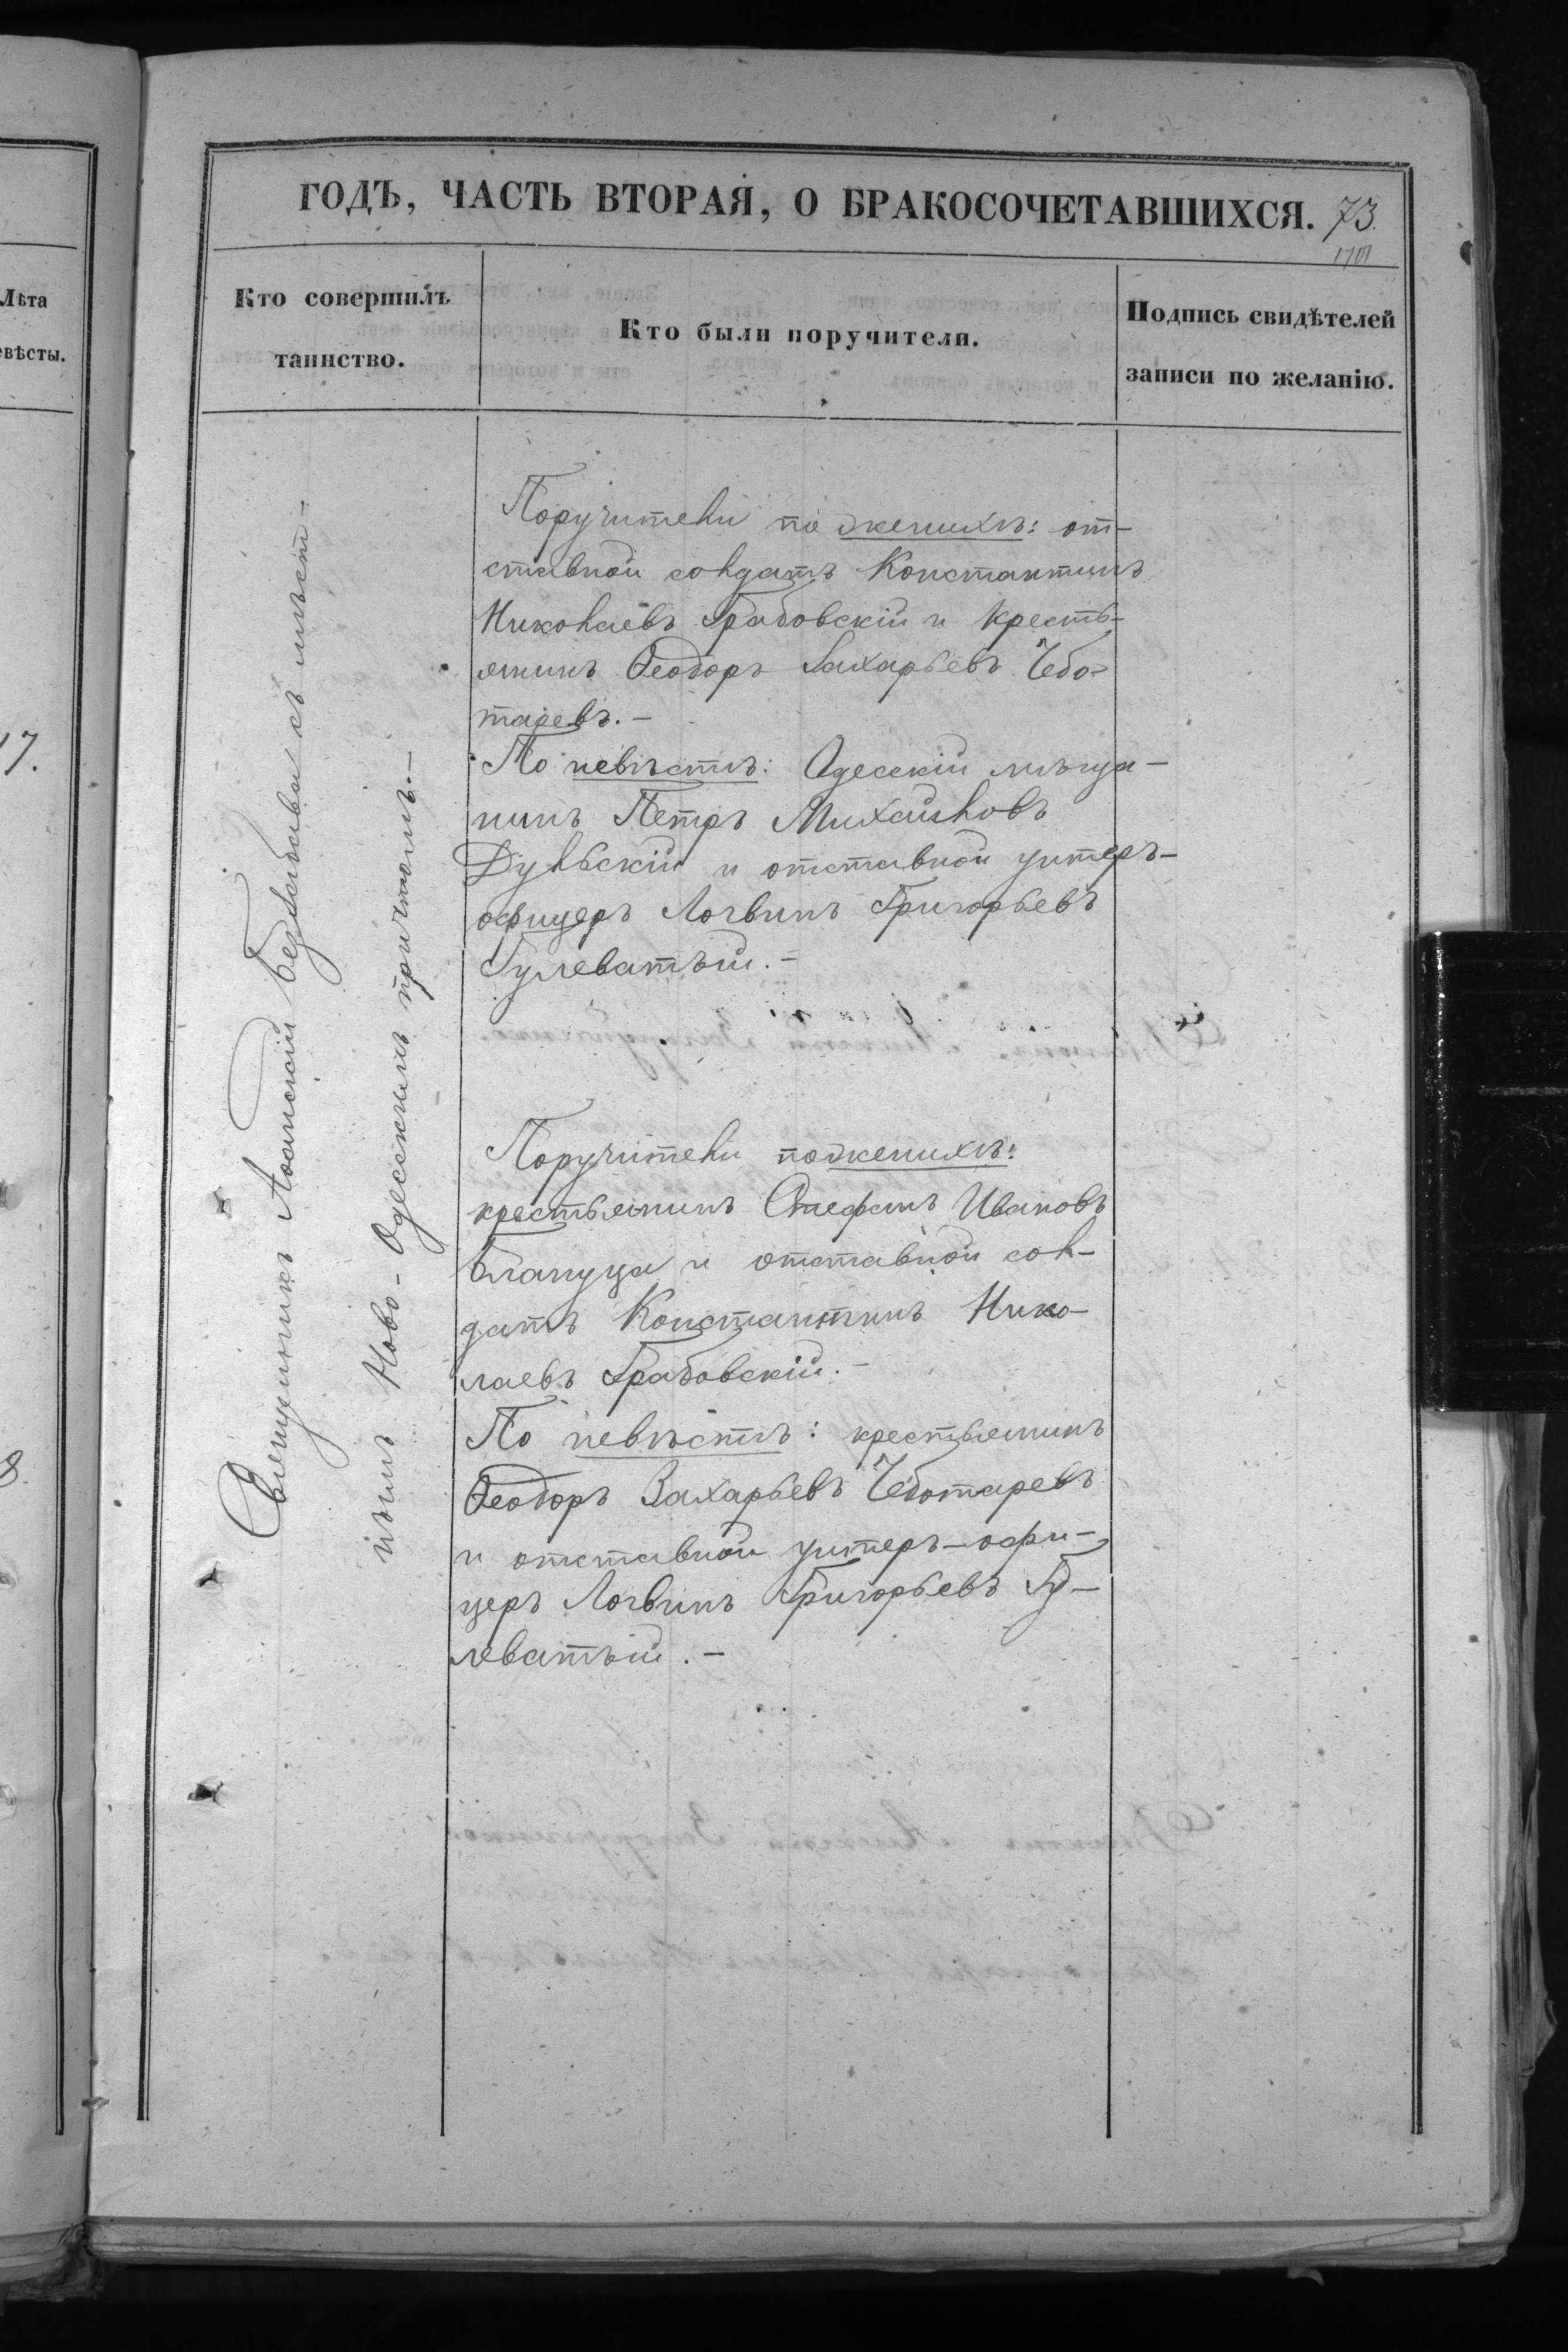 Лѣта
евѣсты.
17.
8.
ГОДЪ, ЧАСТЬ ВТОРАЯ, О БРАКОСОЧЕТАВШИХСЯ. 73.
Кто совершилъ
таинство.
Кто были поручители.
Подпись свидѣтелей
записи по желанію.
Священникъ Іоаникій съ мѣст-
нымъ Ново-Одесскимъ причтомъ.-
Поручители по женихѣ: от-
ставной солдатъ Константинъ
Николаевъ Грабовскій и кресть-
янинъ Ѳеодоръ Захарьевъ Чебо-
таревъ.-
По невѣстѣ: Одесскій мѣща-
нинъ Петръ Михайловъ
Дульскій и отставной унтеръ-
офицеръ Логвинъ Григорьевъ
Гулеватый.-
Поручители по женихѣ:
крестьянинъ Стефанъ Ивановъ
Блануца и отставной сол-
датъ Константинъ Нико-
лаевъ Грабовскій.-
По невѣстѣ: крестьянинъ
Ѳеодоръ Захарьевъ Чеботаревъ
и отставной унтеръ-офи-
церъ Логвинъ Григорьевъ Гу-
леватый.-